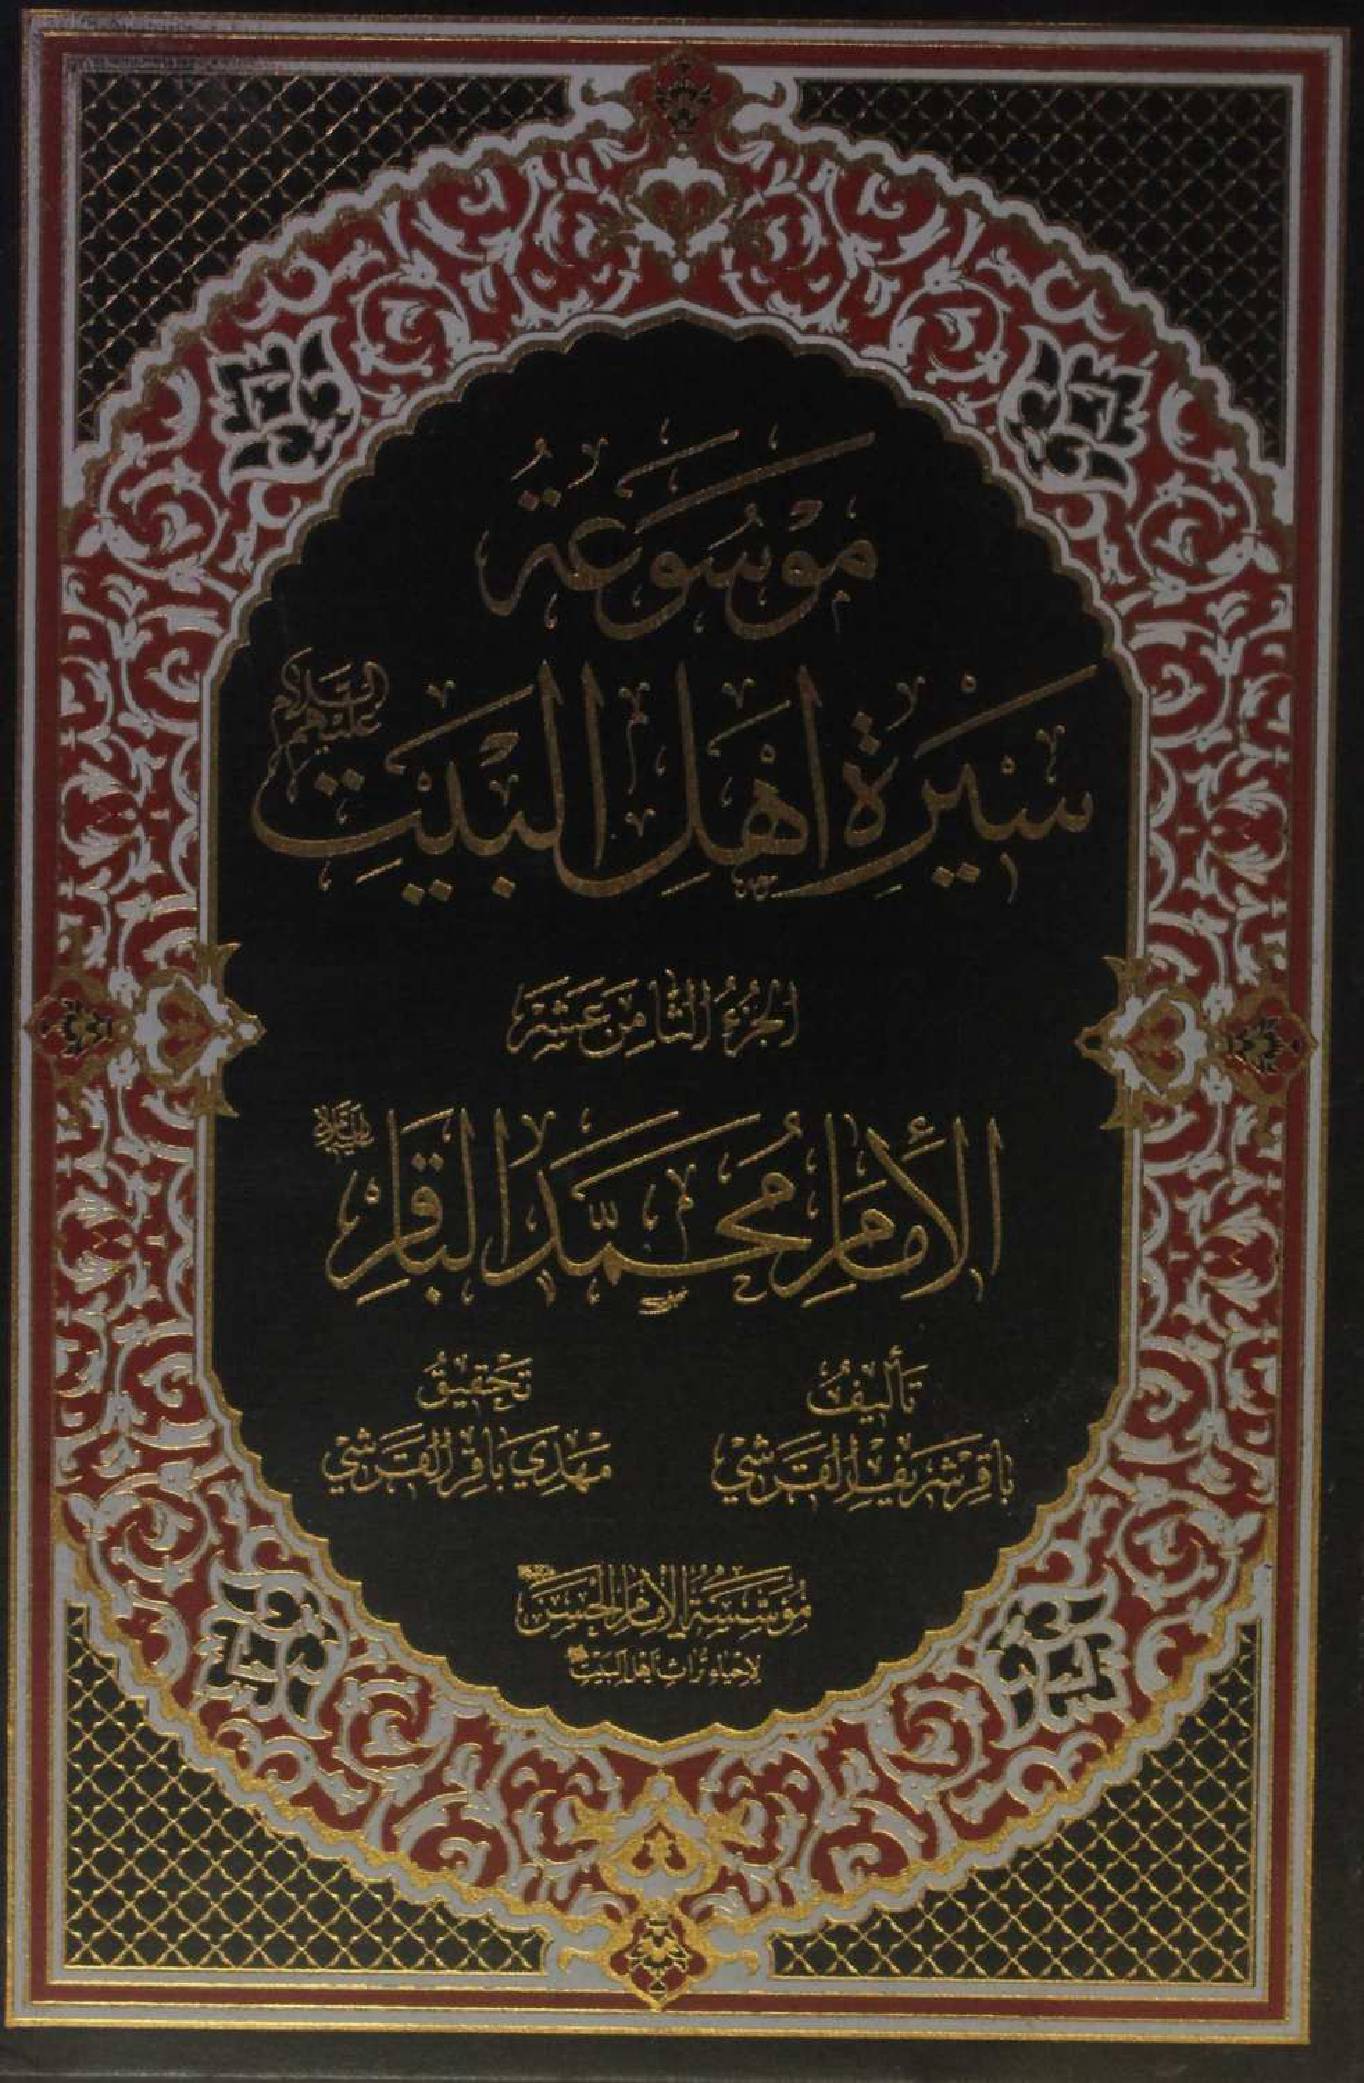 مَوْسُوعَةُ
سِيْرَةِ اَهْلِ البَيْتِ عَلَيْهِم السَّلَام
الجُزءُ الثَّامِنَ عَشَر
الإمَام مُحَمَّد البَاقِر
تَأليفُ
بَاقِر شَرِيف القَرَشِيّ
تَحْقِيقُ
مَهْدِي بَاقِر القَرَشِيّ
مُؤَسَّسَةُ الإمَامِ الحَسَنِ
لإحْيَاءِ تُرَاثِ أَهْلِ البَيْتِ